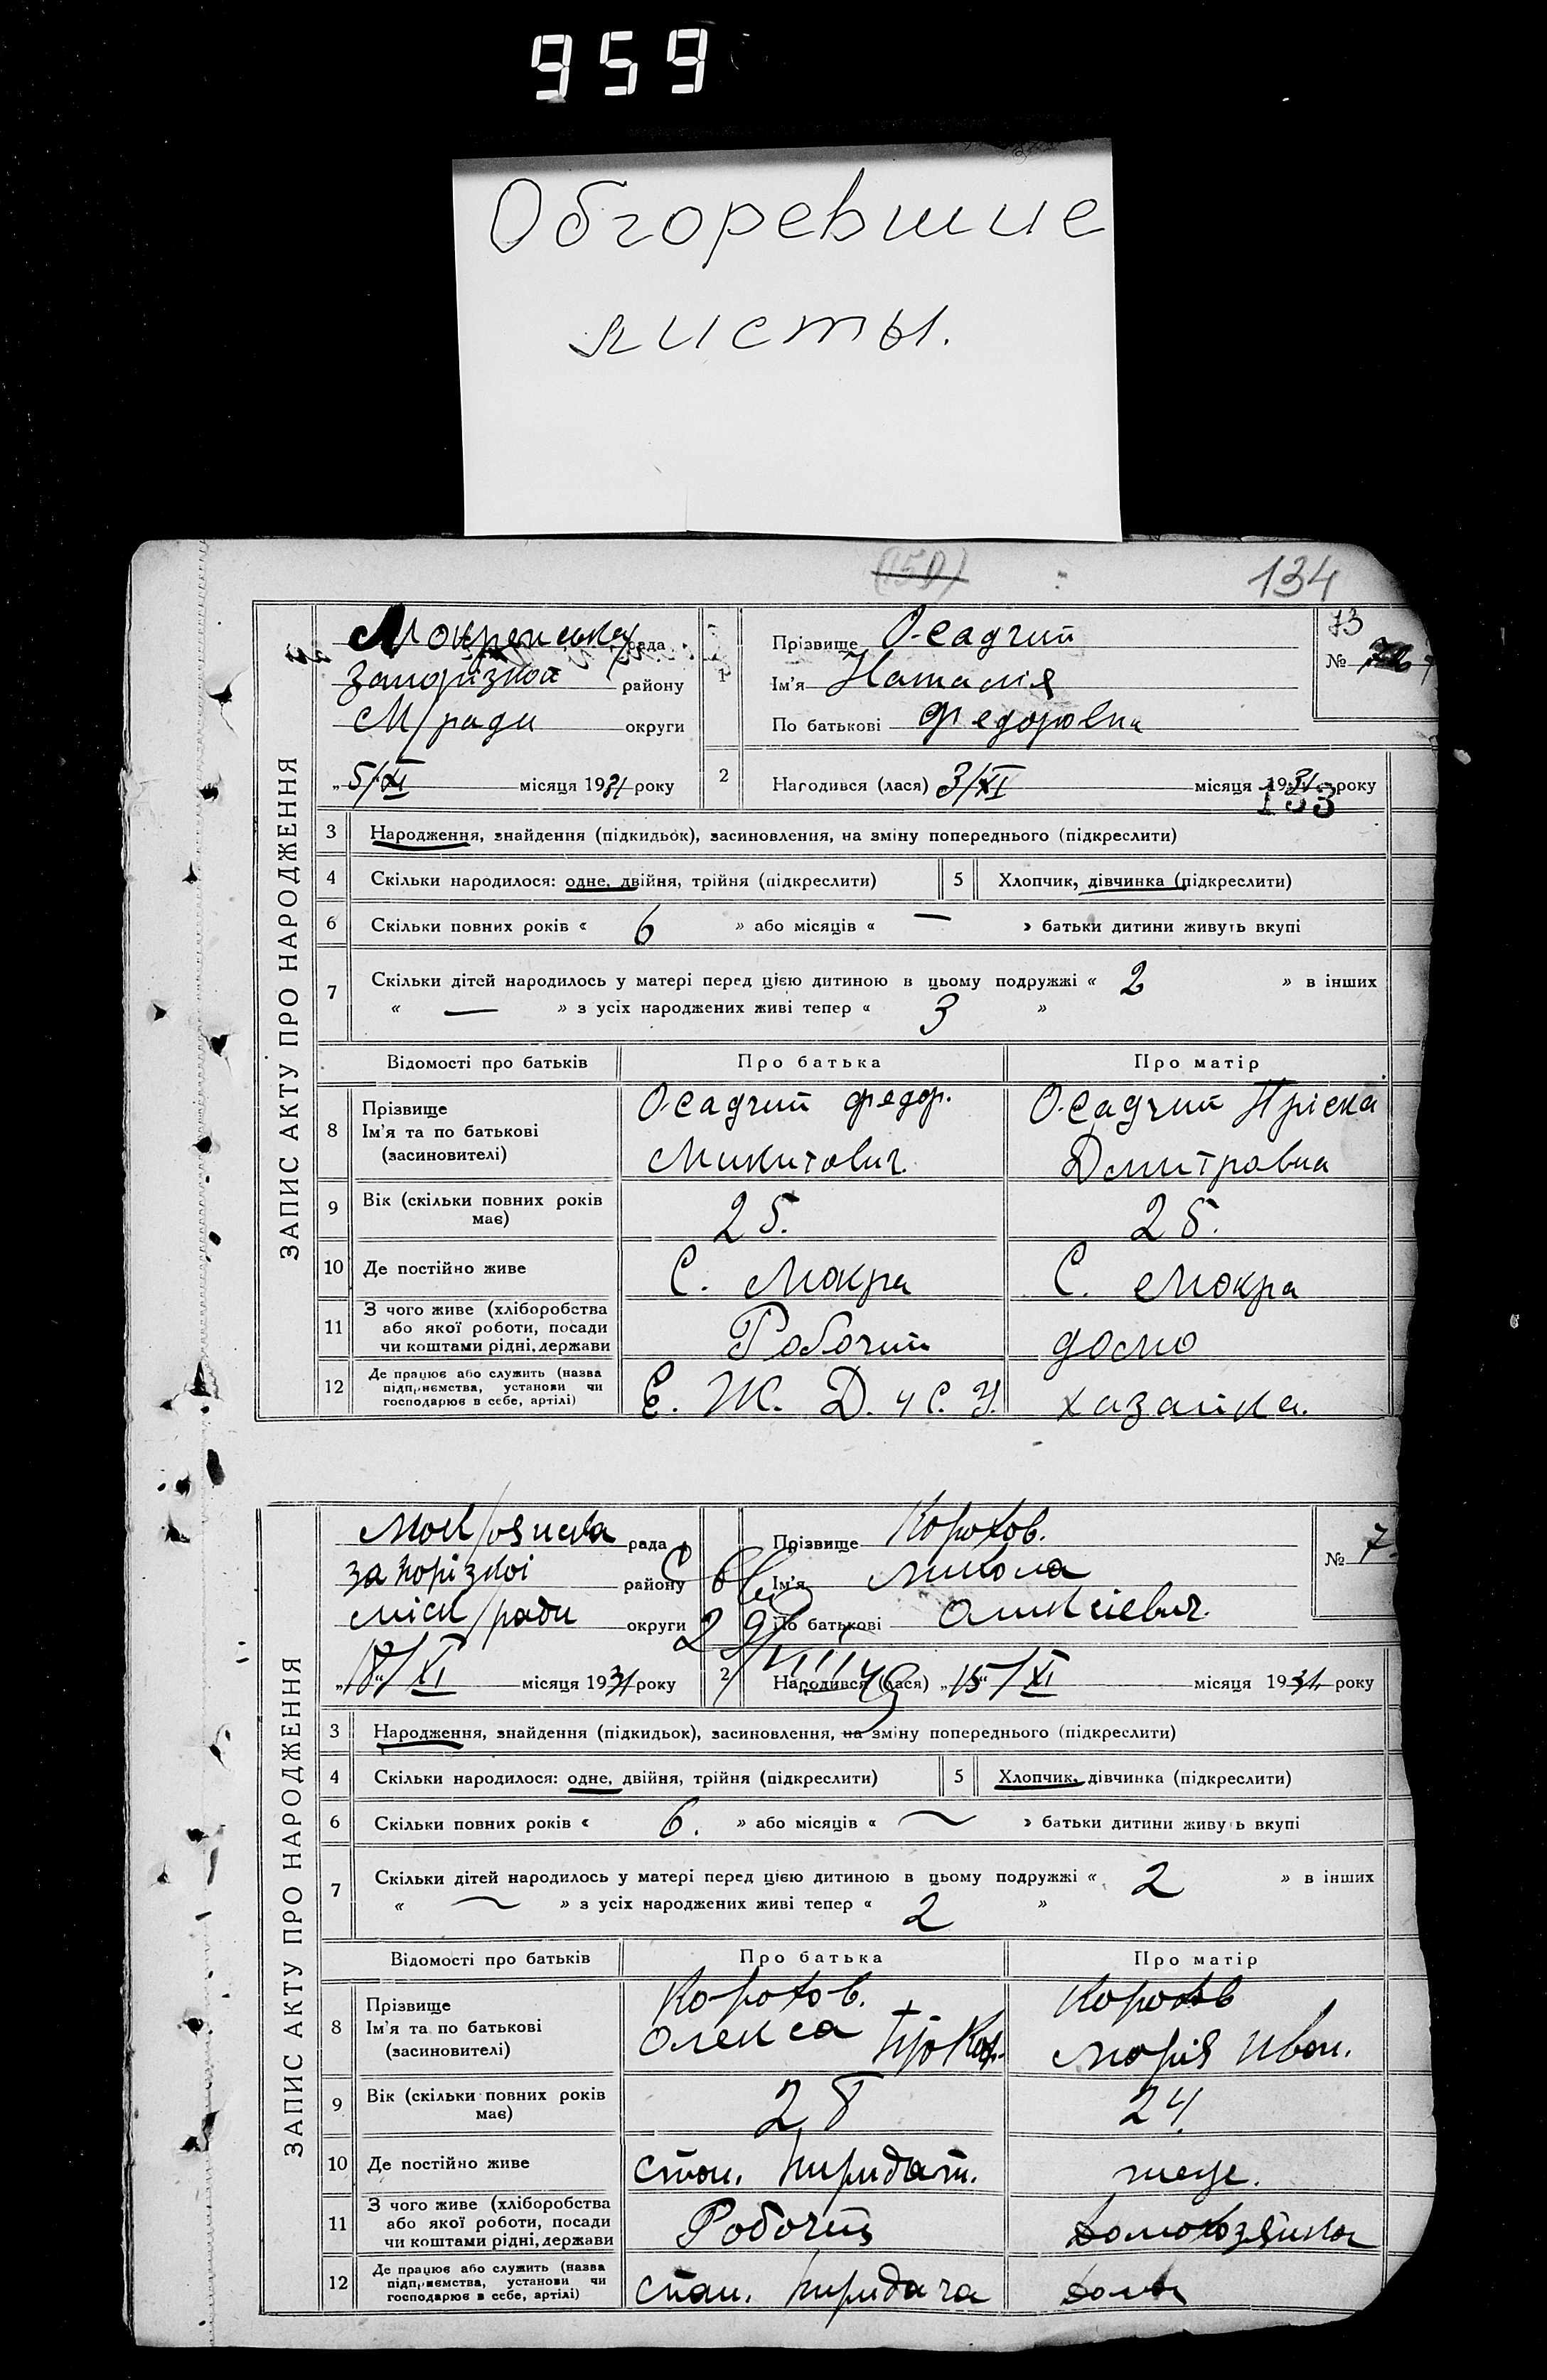 959
Обгоревшие
листы.
134
ЗАПИС АКТУ ПРО НАРОДЖЕННЯ
Мокрянська рада
Запорізкої району
М/ради округи
„5/XI місяця 1931 року
1
Прізвище Осадчий
Ім'я Наталія
По батькові Федоровна
73
№
2 Народився (лася) 3/XI місяця 1931 року
133
3 Народження, знайдення (підкидьок), засиновлення, на зміну попереднього (підкреслити)
4 Скільки народилося: одне, двійня, трійня (підкреслити) 5 Хлопчик, дівчинка (підкреслити)
6 Скільки повних років « 6 » або місяців « — » батьки дитини живуть вкупі
7 Скільки дітей народилось у матері перед цією дитиною в цьому подружжі « 2 » в інших
« — » з усіх народжених живі тепер « 3 »
Відомості про батьків Про батька Про матір
8 Прізвище
Ім'я та по батькові
(засиновителі)
Осадчий Федор.
Микитович.
Осадчий Пріска
Дмитровна
9 Вік (скільки повних років
має)
25. 25.
10 Де постійно живе С. Мокра С. Мокра
11 З чого живе (хліборобства
або якої роботи, посади
чи коштами рідні, держави
Робочий домо
12 Де працює або служить (назва
підприємства, установи чи
господарює в себе, артілі)
Є. Ж. Д. хазайка.
ЗАПИС АКТУ ПРО НАРОДЖЕННЯ
рада
запорізкої району
міск/ради округи
„18"/XI місяця 1931 року
Прізвище Корохов.
Ім'я Микола
По батькові Оликсієвич.
№ 7
2 Народився (лася) „15"/XI місяця 1931 року
3 Народження, знайдення (підкидьок), засиновлення, на зміну попереднього (підкреслити)
4 Скільки народилося: одне, двійня, трійня (підкреслити) 5 Хлопчик, дівчинка (підкреслити)
6 Скільки повних років « 6. » або місяців « ~ » батьки дитини живуть вкупі
7 Скільки дітей народилось у матері перед цією дитиною в цьому подружжі « 2 » в інших
« ~ » з усіх народжених живі тепер « 2 »
Відомості про батьків Про батька Про матір
8 Прізвище
Ім'я та по батькові
(засиновителі)
Корохов.
Олекса Прокоф.
Корохов
Марія Иван.
9 Вік (скільки повних років
має)
28 24
10 Де постійно живе стан. Пиридат. теже.
11 З чого живе (хліборобства
або якої роботи, посади
чи коштами рідні, держави
Робочий домохозяйка
12 Де працює або служить (назва
підприємства, установи чи
господарює в себе, артілі)
стан. Пиридача дома